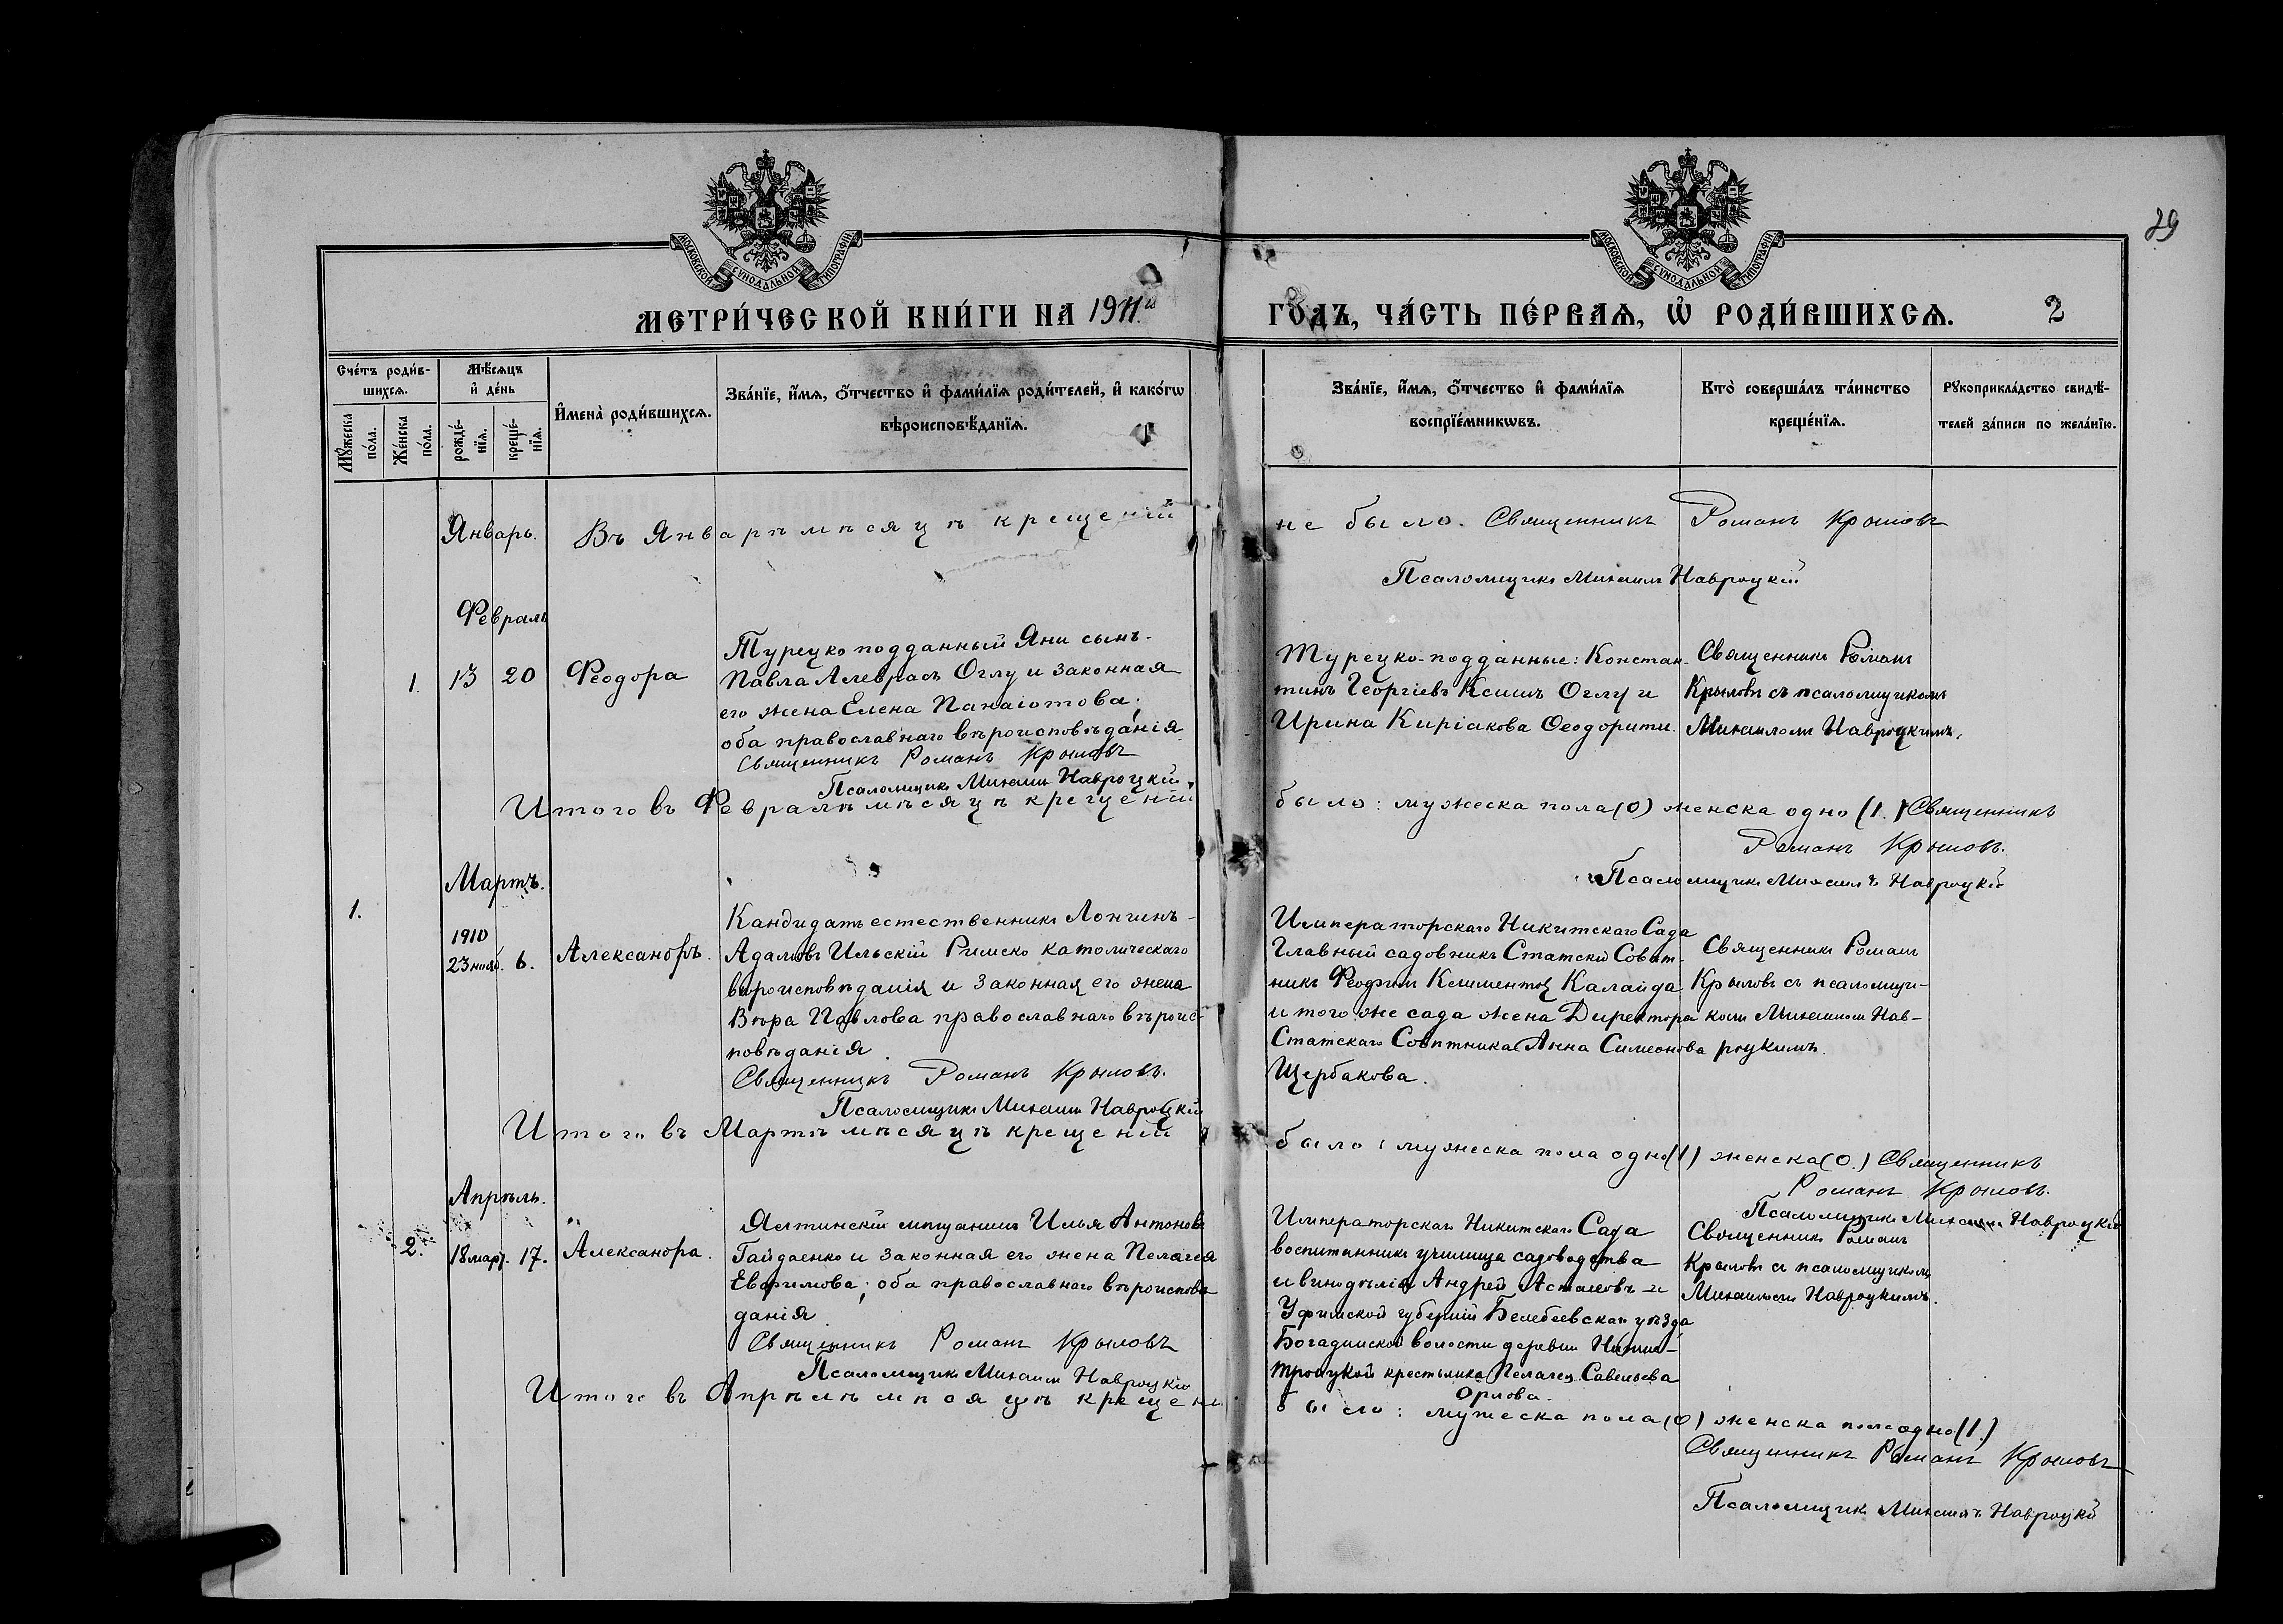 МОСКОВСКОЙ СУНОДАЛЬНОЙ ТИПОГРАФІИ
МОСКОВСКОЙ СУНОДАЛЬНОЙ ТИПОГРАФІИ
29
МЕТРИ́ЧЕСКОЙ КНИ́ГИ НА 1911й ГОДЪ, ЧА́СТЬ ПЕ́РВАѦ, Ѡ҆ РОДИ́ВШИХСѦ. 2
Сче́тъ роди́в-
шихсѧ.
Мѣ́сѧцъ
и҆ де́нь
Мꙋ́жеска по́ла.
Же́нска по́ла.
рожде́-нїѧ.
креще́-нїѧ.
И҆мена̀ роди́вшихсѧ.
Зва́нїе, и҆́мѧ, ѻ҆́тчество и҆ фами́лїѧ роди́телей, и҆ како́гѡ
вѣроисповѣ́данїѧ.
Зва́нїе, и҆́мѧ, ѻ҆́тчество и҆ фами́лїѧ
воспрїе́мникѡвъ.
Кто̀ соверша́лъ та́инство
креще́нїѧ.
Рꙋкоприкла́дство свидѣ́-
телей за́писи по жела́нїю.
Январь. Въ Январѣ мѣсяцѣ крещеній не было. Священникъ Романъ Крыловъ
Псаломщикъ Михаилъ Навроцкій
Февраль
1. 13 20 Феодора
Турецко подданный Яни сынъ
Павла Алеврасъ Оглу и законная
его жена Елена Панаіотова;
оба православнаго вѣроисповѣданія.
Священникъ Романъ Крыловъ
Псаломщикъ Михаилъ Навроцкій
Турецко-подданные: Констан-
тинъ Георгіевъ Оглу и
Ирина Киріакова Феодорити.
Священникъ Романъ
Крыловъ съ псаломщикомъ
Михаиломъ Навроцкимъ.
Итого въ Февралѣ мѣсяцѣ крещеній было: мужеска пола (0) женска одно (1.) Священникъ
Романъ Крыловъ.
Псаломщикъ Михаилъ Навроцкій
Мартъ.
1.
1910
23 нояб. 6. Александръ.
Кандидатъ естественникъ Лонгинъ
Адамовъ Ильскій Римско католическаго
вѣроисповѣданія и законная его жена
Вѣра Павлова православнаго вѣроис-
повѣданія.
Священникъ Романъ Крыловъ.
Псаломщикъ Михаилъ Навроцкій
Императорскаго Никитскаго Сада
Главный садовникъ Статскій Совѣт-
никъ Феофилъ Климентов Калайда
и того же сада жена Директора
Статскаго Совѣтника Анна Симеонова
Щербакова.
Священникъ Романъ
Крыловъ съ псаломщи-
комъ Михаиломъ Нав-
роцкимъ.
Итого въ Мартѣ мѣсяцѣ крещеній было: мужеска пола одно (1) женска (0.) Священникъ
Романъ Крыловъ.
Псаломщикъ Михаилъ Навроцкій
Апрѣль.
2. 18 март. 17. Александра.
Ялтинскій мѣщанинъ Илья Антоновъ
Гайдаенко и законная его жена Пелагея
Евфимова; оба православнаго вѣроисповѣ-
данія.
Священникъ Романъ Крыловъ
Псаломщикъ Михаилъ Навроцкій
Императорскаго Никитскаго Сада
воспитанникъ училища садоводства
и винодѣлія Андрей и
Уфимской губерніи Белебеевскаго уѣзда
Богадинской волости деревни
Троицкой крестьянка Пелагея Савельева
Орлова.
Священникъ Романъ
Крыловъ съ псаломщикомъ
Михаиломъ Навроцкимъ.
Итого въ Апрѣлѣ мѣсяцѣ крещеній было: мужеска пола (0) женска пола одно (1.)
Священникъ Романъ Крыловъ
Псаломщикъ Михаилъ Навроцкій